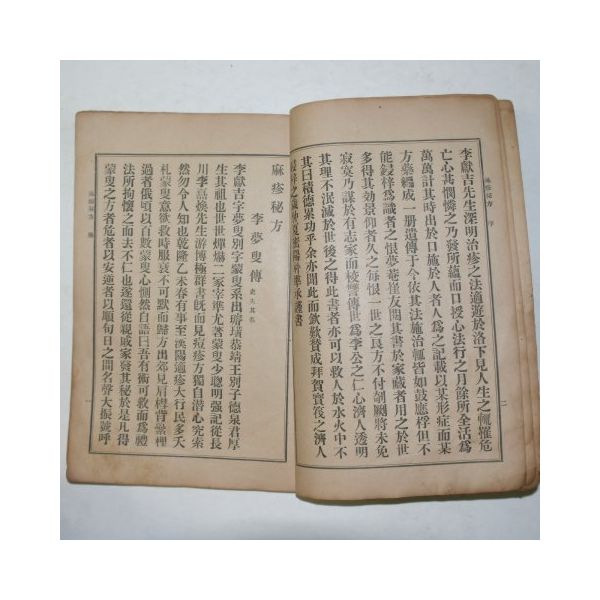 李獻吉先生深明治疹之法適遊於洛下見人生之輒罹危
亡心甚憫憐之乃發所蘊而口授心法行之月餘所全活爲
萬萬計其時出於日施於人者人爲之記載以某形症而某
方藥編成一册遺傳于今依其法施治輒皆如鼓應桴但不
能鋟梓爲識者之恨夢菴崔友聞其書於家藏者用之於世
多得其効景仰者久之每恨一世之良方不付剞劂將未免
寂寞乃謀於有志家而校讐傳世爲李公之仁心濟人透明
其理不泯滅於世後之得此書者亦可以救人於水火中不
其曰積德累功乎余亦聞此而歎欷賛成拜賀實後之濟人
麻疹秘方
李夢叟傳
李獻吉字夢叟別字蒙叟系出璿璜恭靖王別子德泉君厚
生其祖也世世燀爀二家宰華尤著蒙叟少聰明强記從長
川李嘉煥先生游博極群書旣而見痘疹方獨自潜心究索
然勿令人知也乾隆乙未春有事至漢陽適疹大行民多夭
札蒙叟意欲救時服衰不可默而歸方出郊見肩欑背虆梩
過者俄頃以百數蒙叟心惻然自語曰吾有術可救而爲禮
法所拘懷之而去不仁也遂還從親戚家發其秘於是凡得
蒙叟之方者危者以安逆者以順旬日之間名聲大振號呼